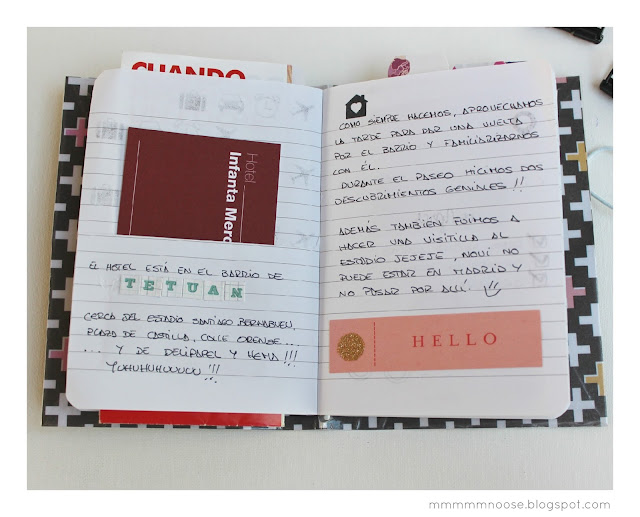 CUANDO
Hotel
Infanta Merc
EL HOTEL ESTÁ EN EL BARRIO DE
TETUAN
CERCA DEL ESTADIO SANTIAGO BERNABEU,
PLAZA DE CASTILLA, CALLE ORENSE...
... Y DE DELIPAPEL Y HEMA!!!
YUHUHUHUUUUU!!!
COMO SIEMPRE HACEMOS, APROVECHAMOS
LA TARDE PARA DAR UNA VUELTA
POR EL BARRIO Y FAMILIARIZARNOS
CON ÉL.
DURANTE EL PASEO HICIMOS DOS
DESCUBRIMIENTOS GENIALES!!
ADEMÁS TAMBIÉN FUIMOS A
HACER UNA VISITILLA AL
ESTADIO JEJEJE, NOUI NO
PUEDE ESTAR EN MADRID Y
NO PASAR POR ALLÍ.
HELLO
mmmmmnoose.blogspot.com